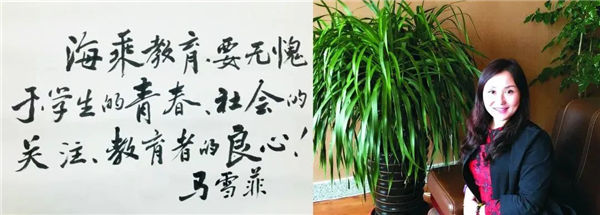 海乘教育、要无愧
于学生的青春、社会的
关注、教育者的良心！
马雪菲